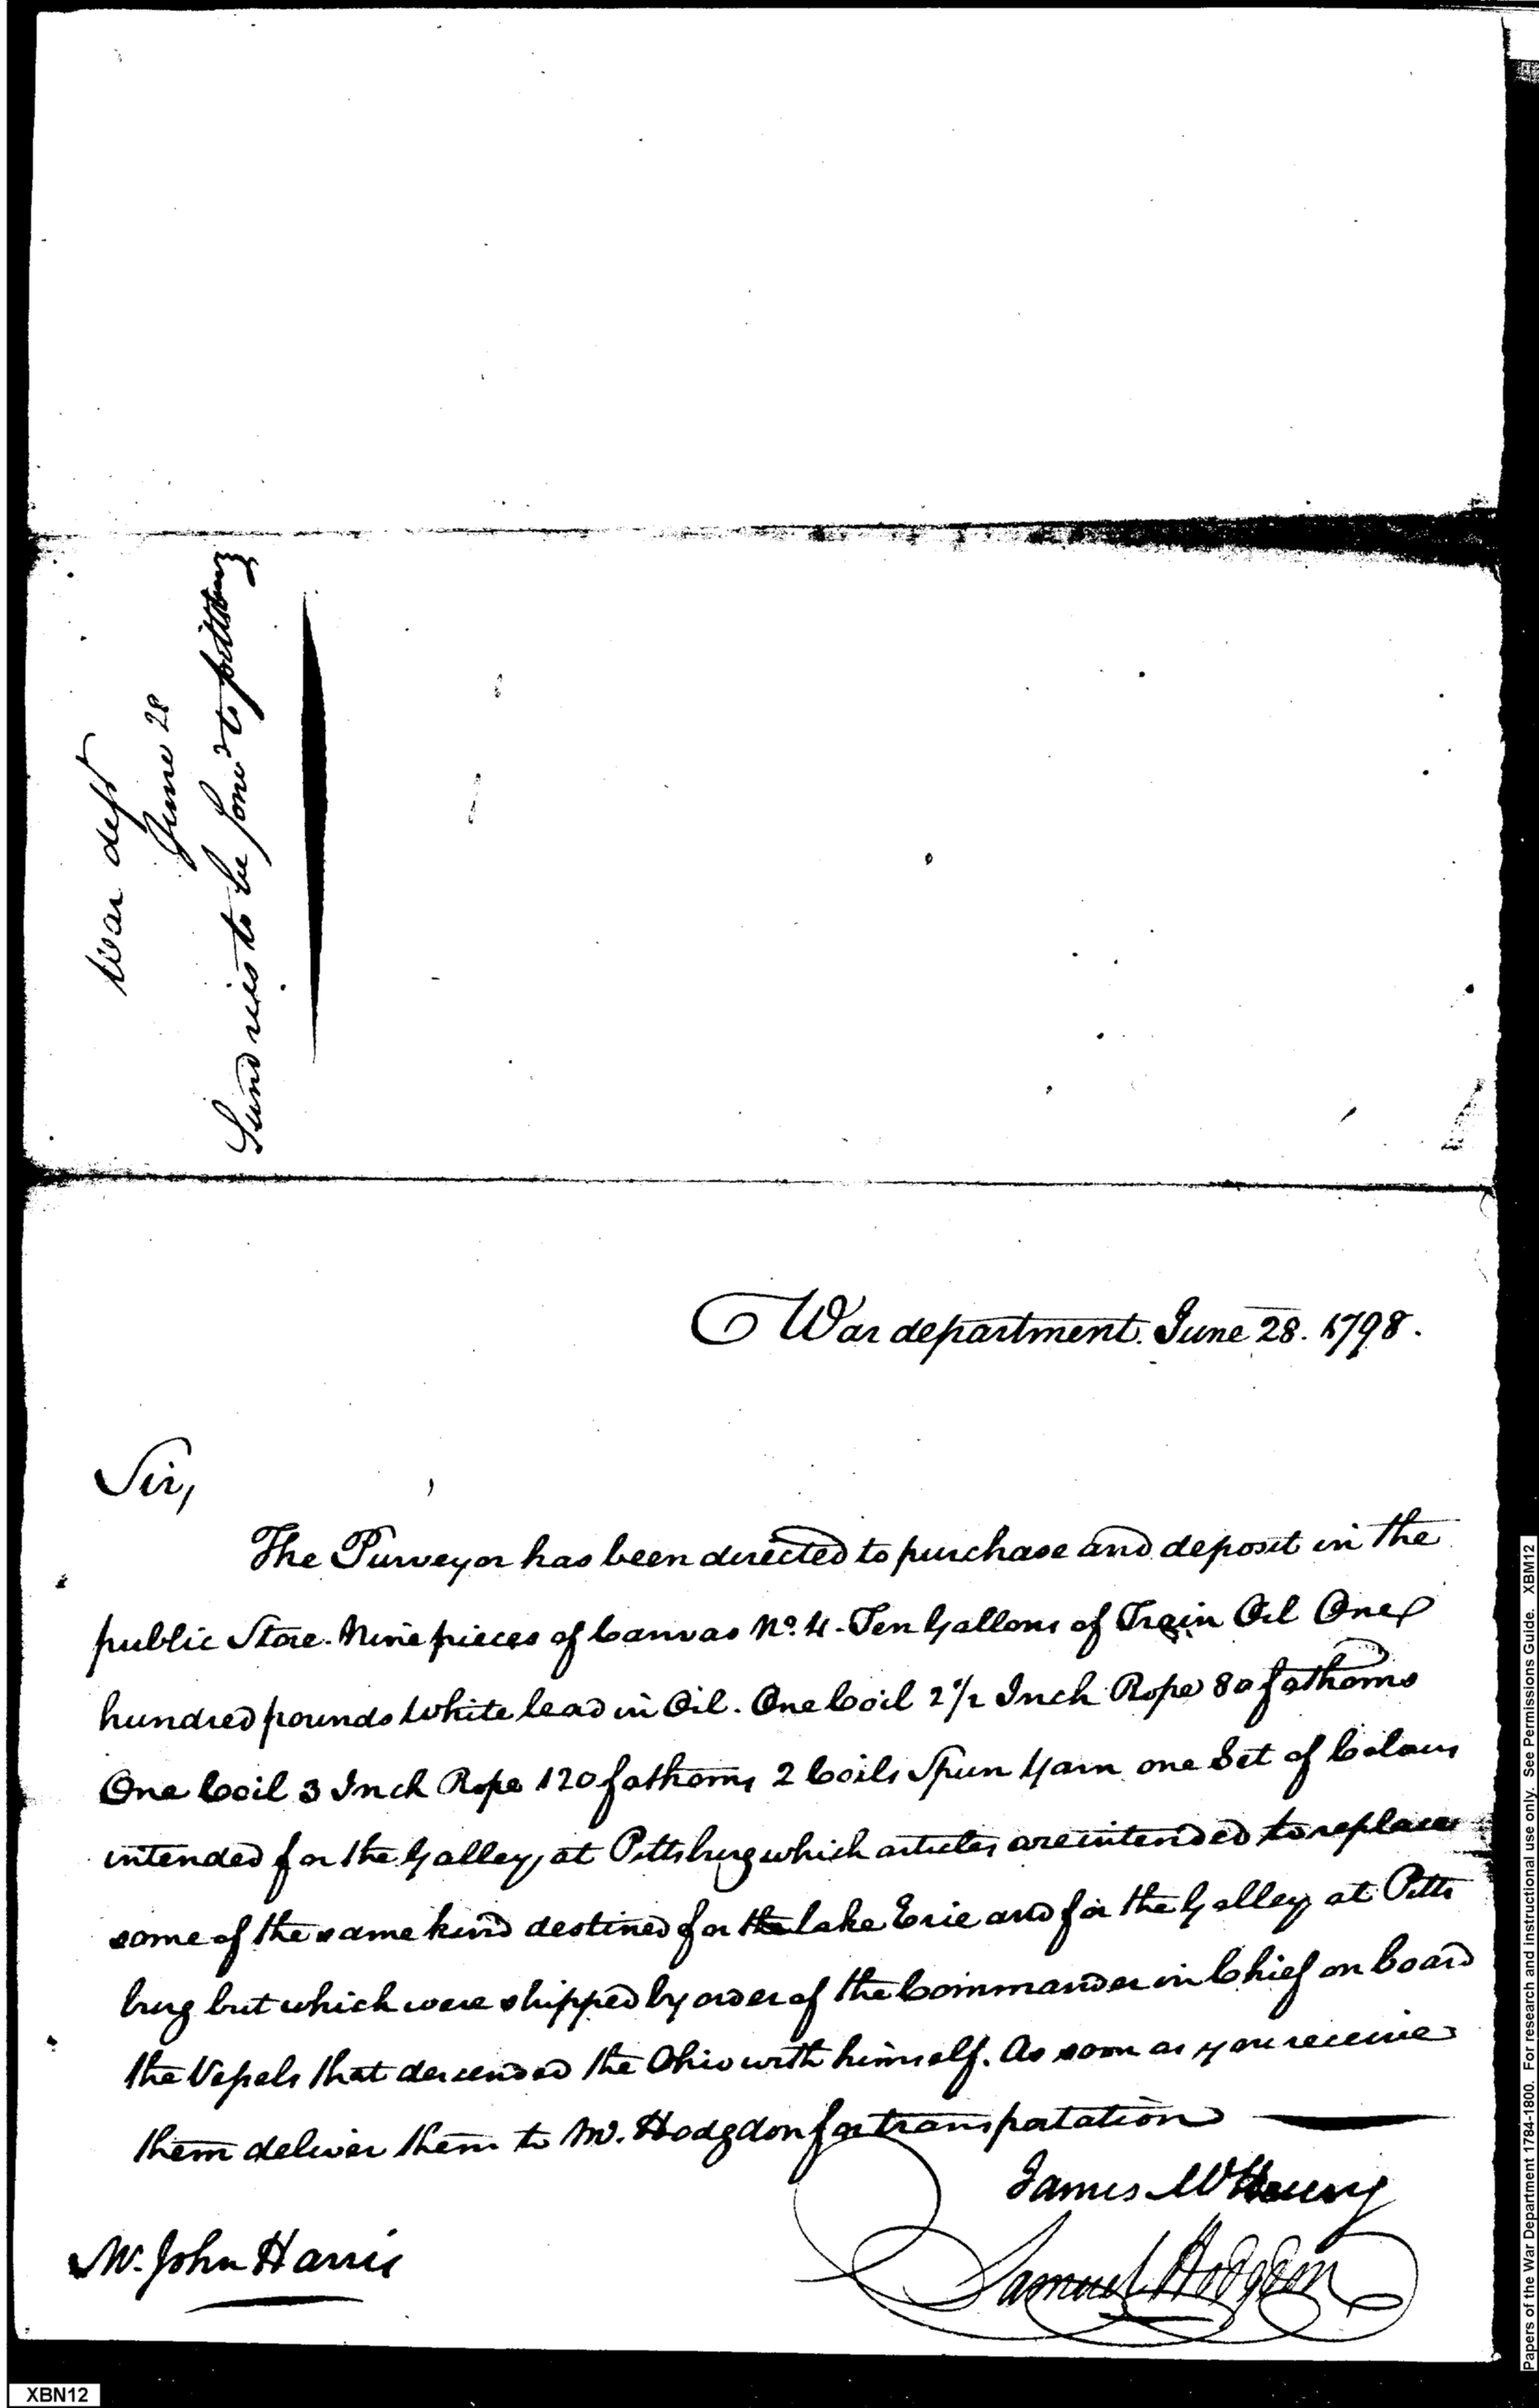 War dept
June 28
Sundries to be forw.d to pittsburg
War department. June 28. 1798.
Sir,
The Purveyor has been directed to purchase and deposit in the
public Store. Nine pieces of Canvas No. 4. Ten Gallons of Train Oil One
hundred pounds White lead in Oil. One Coil 2 1/2 Inch Rope 80 fathoms
One Coil 3 Inch Rope 120 fathoms 2 Coils Spun Yarn one Set of Colours
intended for the Galley, at Pittsburg which articles are intended to replace
some of the same kind destined for the lake Erie and for the Galley at Pitts
burg but which were shipped by order of the Commander in Chief on board
the Vessels that descended the Ohio with himself. As soon as you receive
them deliver them to Mr. Hodgdon for transportation
James McHenry
Mr. John Harris
Samuel Hodgdon
Papers of the War Department 1784-1800. For research and instructional use only. See Permissions Guide. XBM12
XBN12